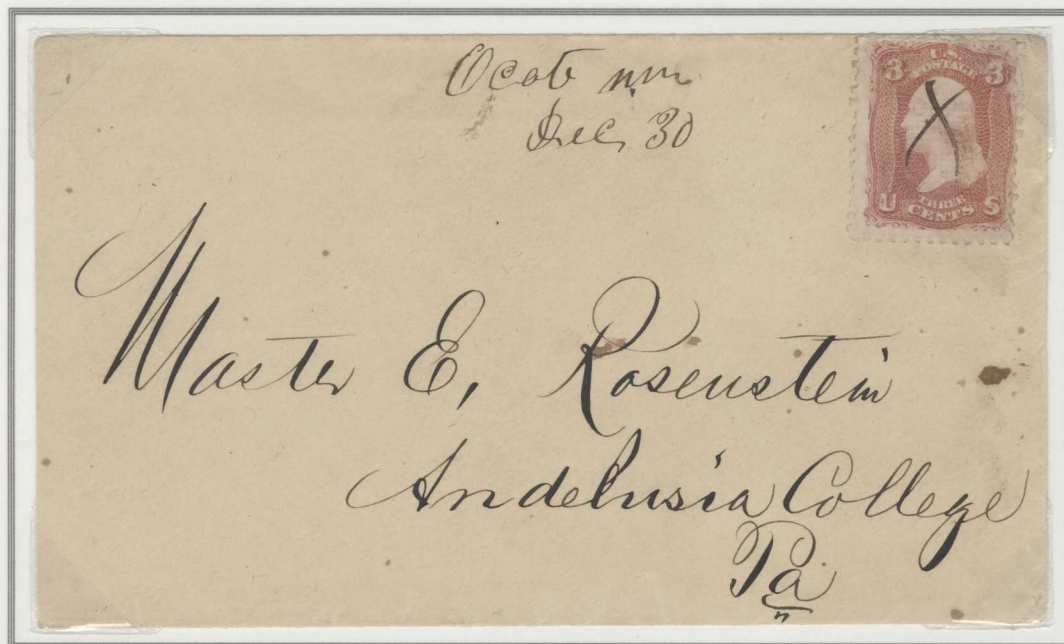 Ocate nm
Dec, 30
3 U.S. POSTAGE 3
THREE
U CENTS S
Master E, Rosenstein
Andelusia College
Pa